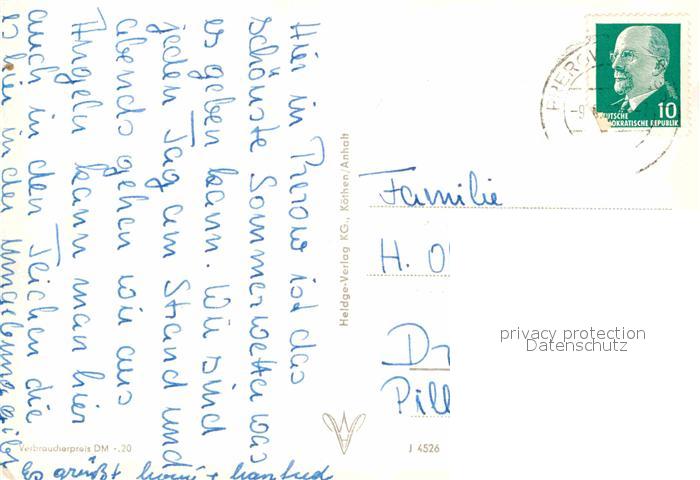 Hier in Prerow ist das
schönste Sommerwetter was
es geben kann. Wir sind
jeden Tag am Strand und
abends gehen wir aus
Angeln kann man hier
auch in den Teichen die
es hier in der Umgebung gibt
Es grüßt
+ Manfred
Verbraucherpreis DM -,20
Heldge-Verlag KG., Köthen/Anhalt
J 4526
PREROW
-9
10
DEUTSCHE
DEMOKRATISCHE REPUBLIK
Familie
H. O
Pill
privacy protection
Datenschutz